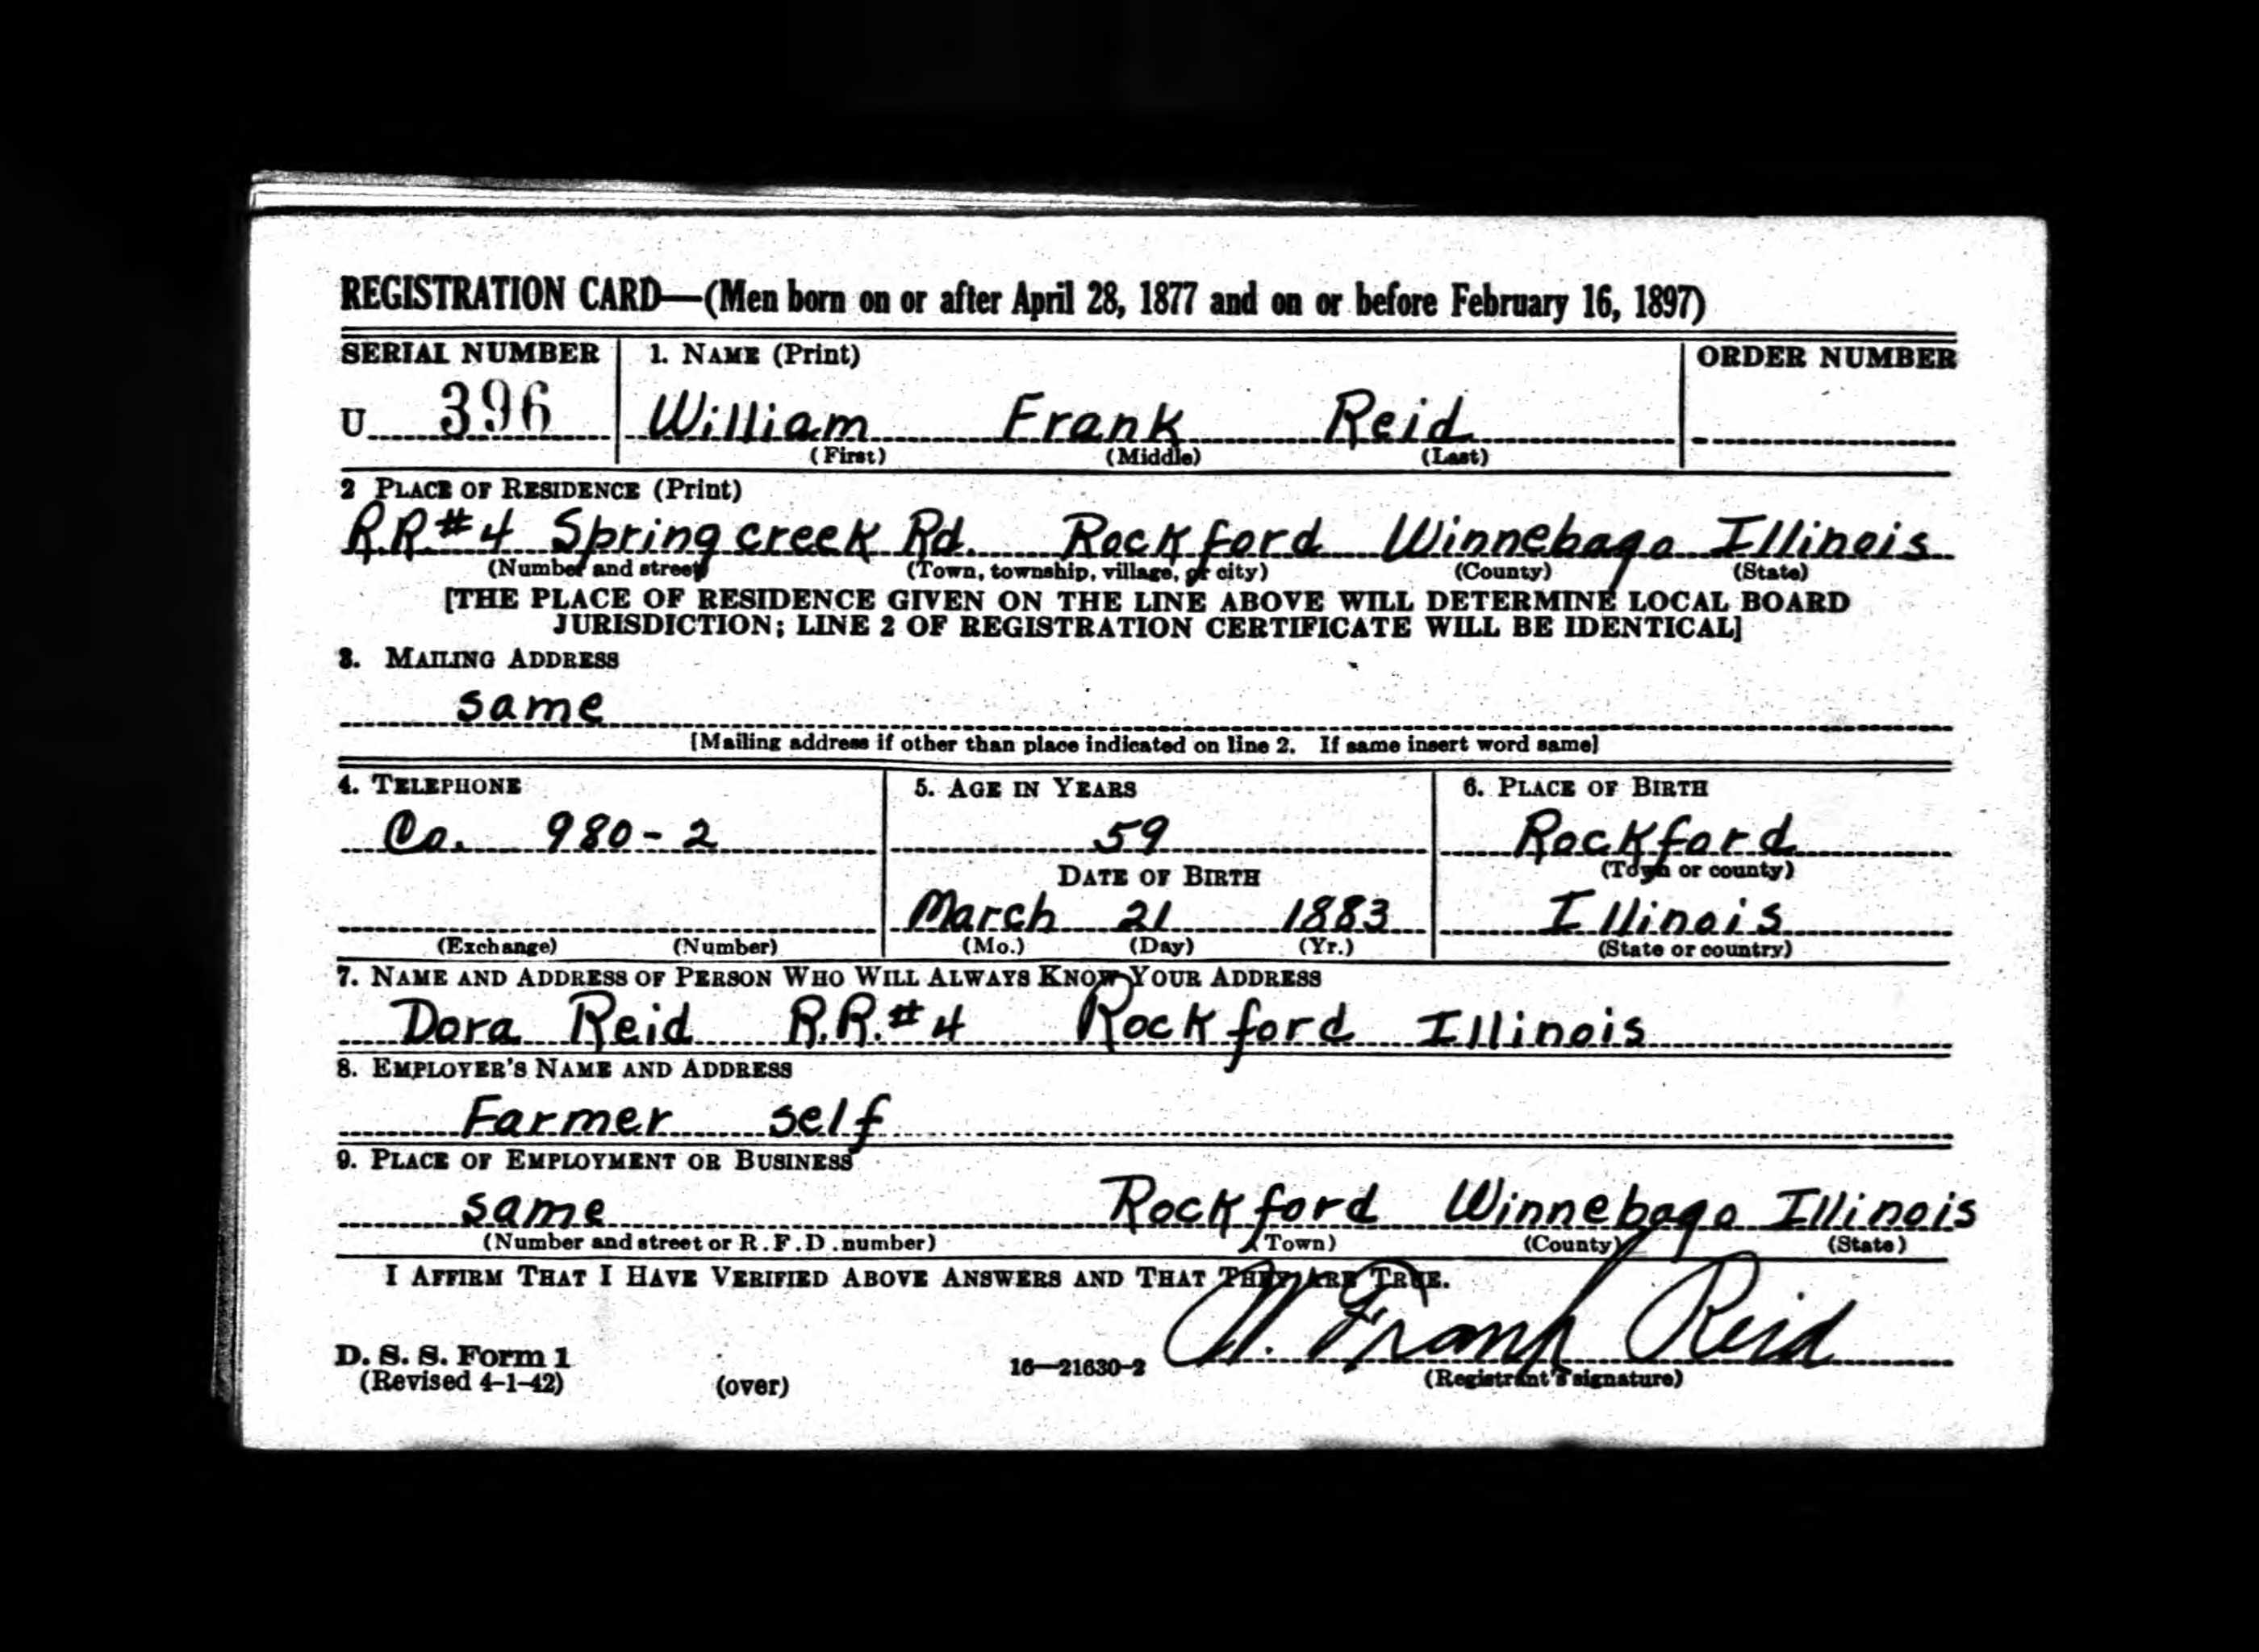 REGISTRATION CARD—(Men born on or after April 28, 1877 and on or before February 16, 1897)
SERIAL NUMBER 1. NAME (Print) ORDER NUMBER
U 396 William Frank Reid
(First) (Middle) (Last)
2 PLACE OF RESIDENCE (Print)
R.R.#4 Spring creek Rd. Rockford Winnebago Illinois
(Number and street) (Town, township, village, or city) (County) (State)
[THE PLACE OF RESIDENCE GIVEN ON THE LINE ABOVE WILL DETERMINE LOCAL BOARD
JURISDICTION; LINE 2 OF REGISTRATION CERTIFICATE WILL BE IDENTICAL]
3. MAILING ADDRESS
same
[Mailing address if other than place indicated on line 2. If same insert word same]
4. TELEPHONE 5. AGE IN YEARS 6. PLACE OF BIRTH
Co. 980-2 59 Rockford
DATE OF BIRTH (Town or county)
March 21 1883 Illinois
(Exchange) (Number) (Mo.) (Day) (Yr.) (State or country)
7. NAME AND ADDRESS OF PERSON WHO WILL ALWAYS KNOW YOUR ADDRESS
Dora Reid R.R.#4 Rockford Illinois
8. EMPLOYER'S NAME AND ADDRESS
Farmer self
9. PLACE OF EMPLOYMENT OR BUSINESS
same Rockford Winnebago Illinois
(Number and street or R.F.D. number) (Town) (County) (State)
I AFFIRM THAT I HAVE VERIFIED ABOVE ANSWERS AND THAT THEY ARE TRUE.
W. Frank Reid
D. S. S. Form 1 16—21630-2
(Revised 4-1-42) (over) (Registrant's signature)